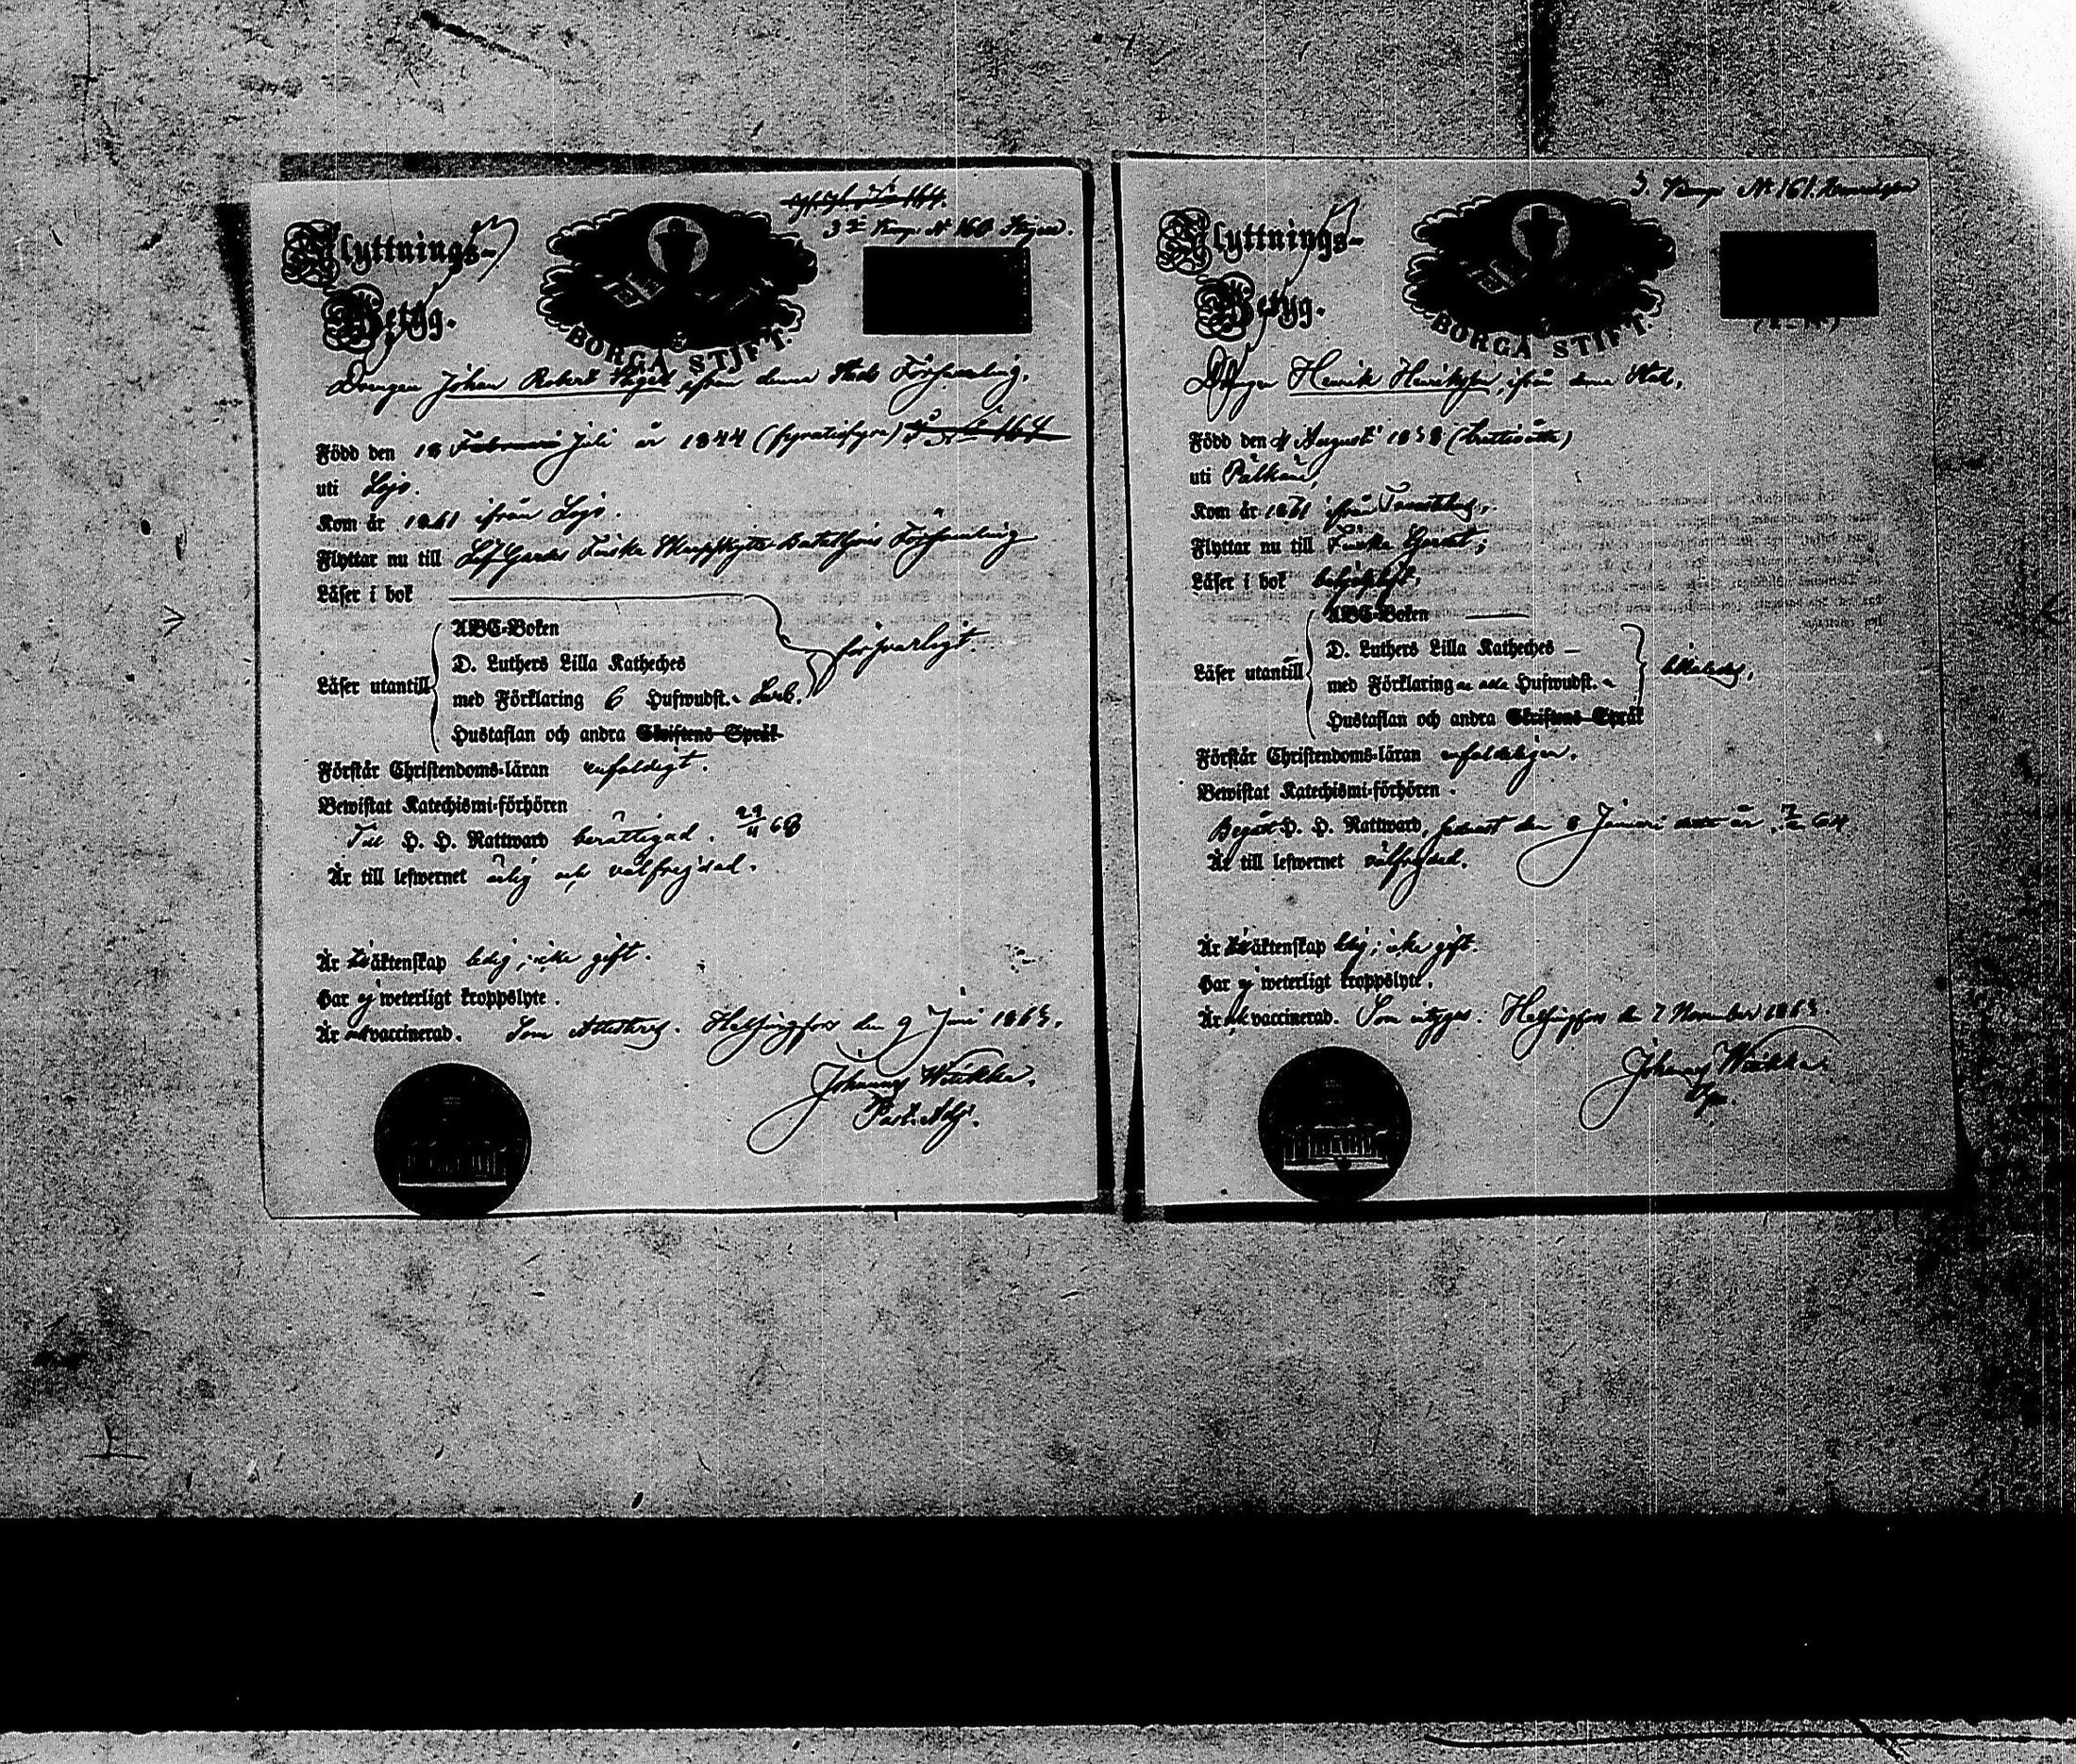 3:e Komp: N:o 160
Flyttnings-
Betyg.
BORGÅ STIFT.
Drengen Johan Robert ifrån denna Stads Församling,
Född den 18 Februari Juli år 1844 (fyratiofyra)
uti Lojo.
Kom år 1861 ifrån Lojo.
Flyttar nu till Lif-Gardes Finska Skarpskytte Bataljons Församling
Läser i bok
försvarligt.
Läser utantill
ABC-Boken
D. Luthers Lilla Katheches
med Förklaring 6 Hufwudst.
Hustaflan och andra Skriftens Språk
Förstår Christendoms-läran enfaldigt.
Bewistat Katechismi-förhören
Till H. H. Nattward berättigad.
Är till lefwernet ärlig och välfrejdad.
Är till äktenskap ledig; icke gift.
Har ej weterligt kroppslyte.
Är vaccinerad. Som attesteras. Helsingfors den 9 Juni 1865.
Johannes
Past. Adj.
3. Komp: N:o 161.
Flyttnings-
Betyg.
BORGÅ STIFT.
Drengen Henrik Henriksson, ifrån denna Stad,
Född den 4 Augusti 1838 (trettioåtta)
uti Pälkäne,
Kom år 1861 ifrån Tavastehus,
Flyttar nu till Finska Gardet;
Läser i bok
ABC-Boken
Läser utantill
D. Luthers Lilla Katheches
med Förklaring Hufwudst.
Hustaflan och andra Skriftens Språk
Förstår Christendoms-läran
Bewistat Katechismi-förhören.
Begått H. H. Nattward, senast den 6 Januari
Är till lefwernet välfrejdad.
Är till äktenskap ledig; icke gift.
Har ej weterligt kroppslyte.
Är vaccinerad. Som intygas: Helsingfors den 7 November 1865.
Johannes